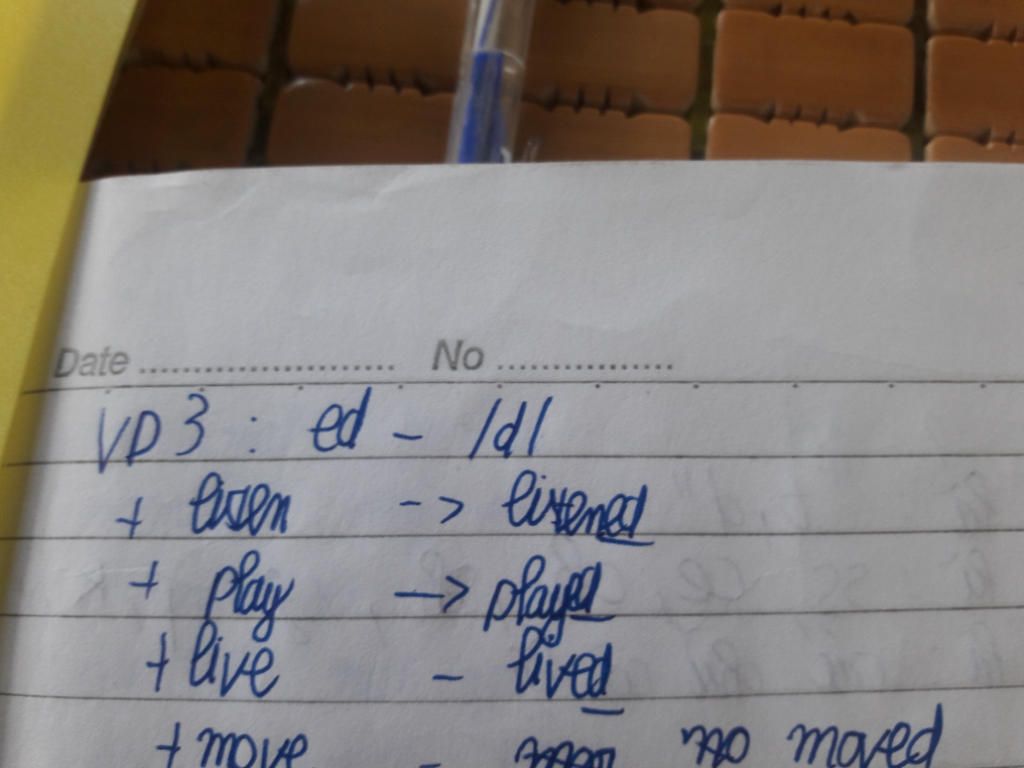 Date ........................ No ................
VD 3 : ed - /d/
+ listen --> listened
+ play -> played
+ live - lived
+ move - moved